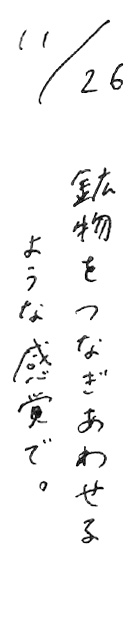 11/26
鉱物をつなぎあわせる
ような感覚で。